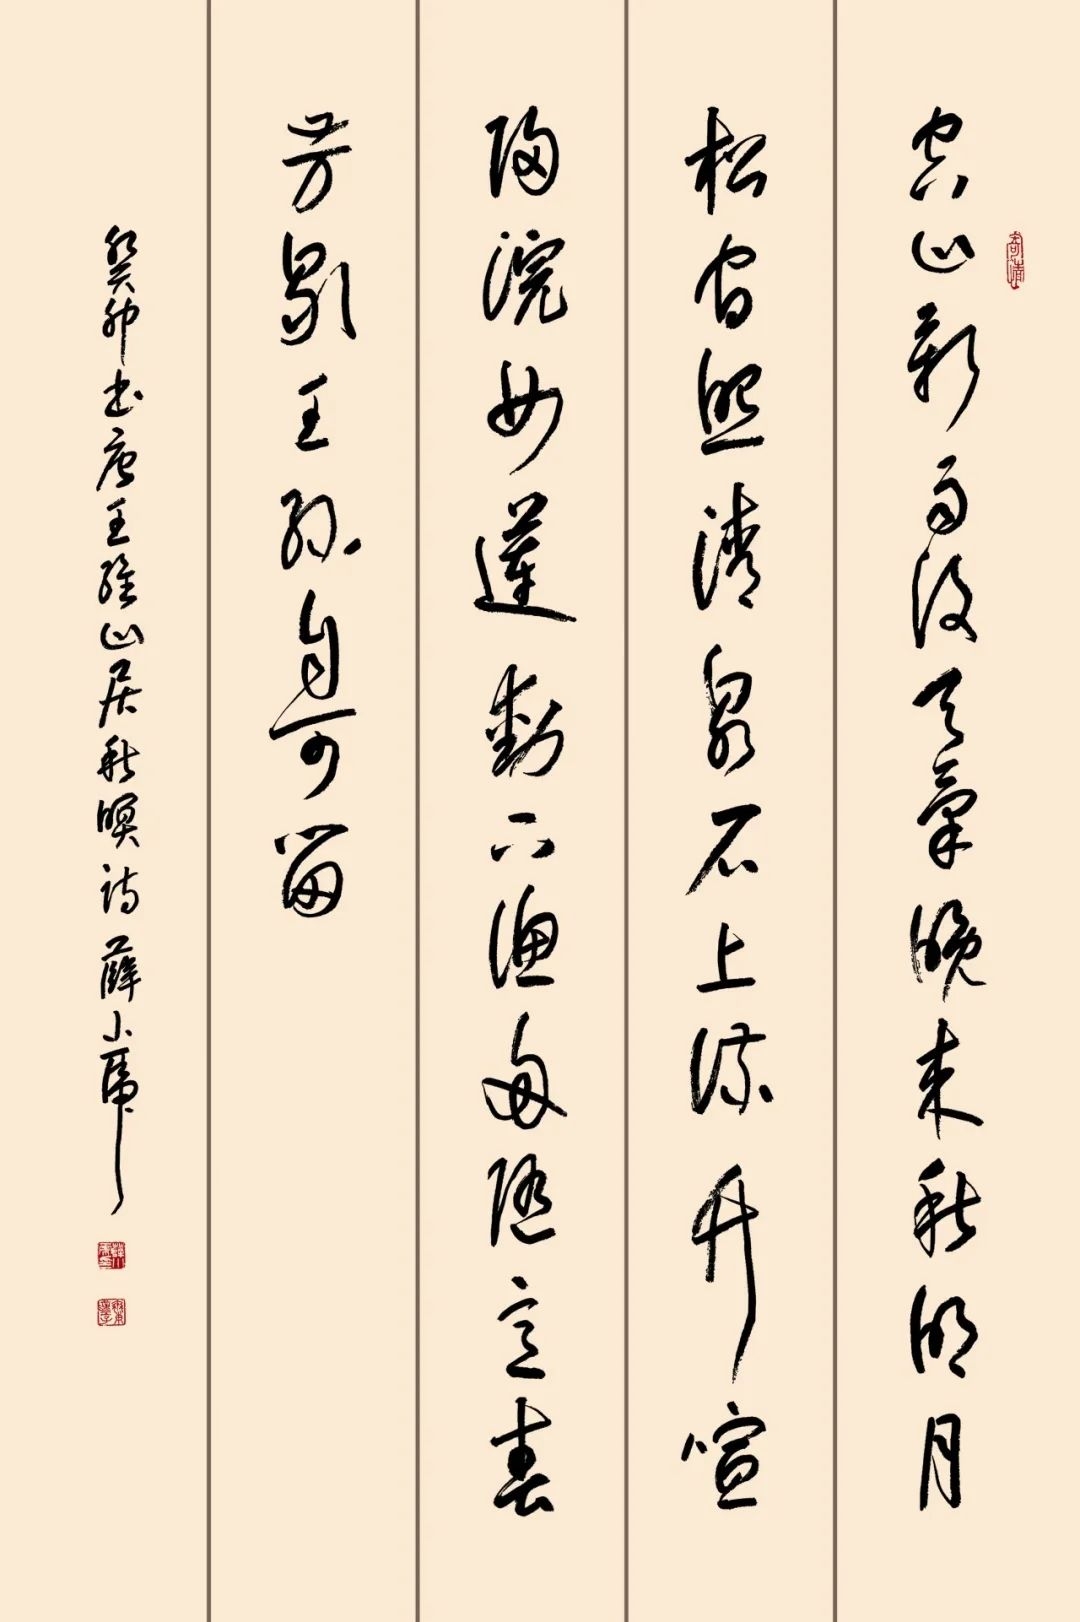 空山新雨後天氣晚来秋明月
松間照清泉石上流竹喧
歸浣女蓮動下漁舟隨意春
芳歇王孫自可留
癸卯書唐王維山居秋暝詩薛小